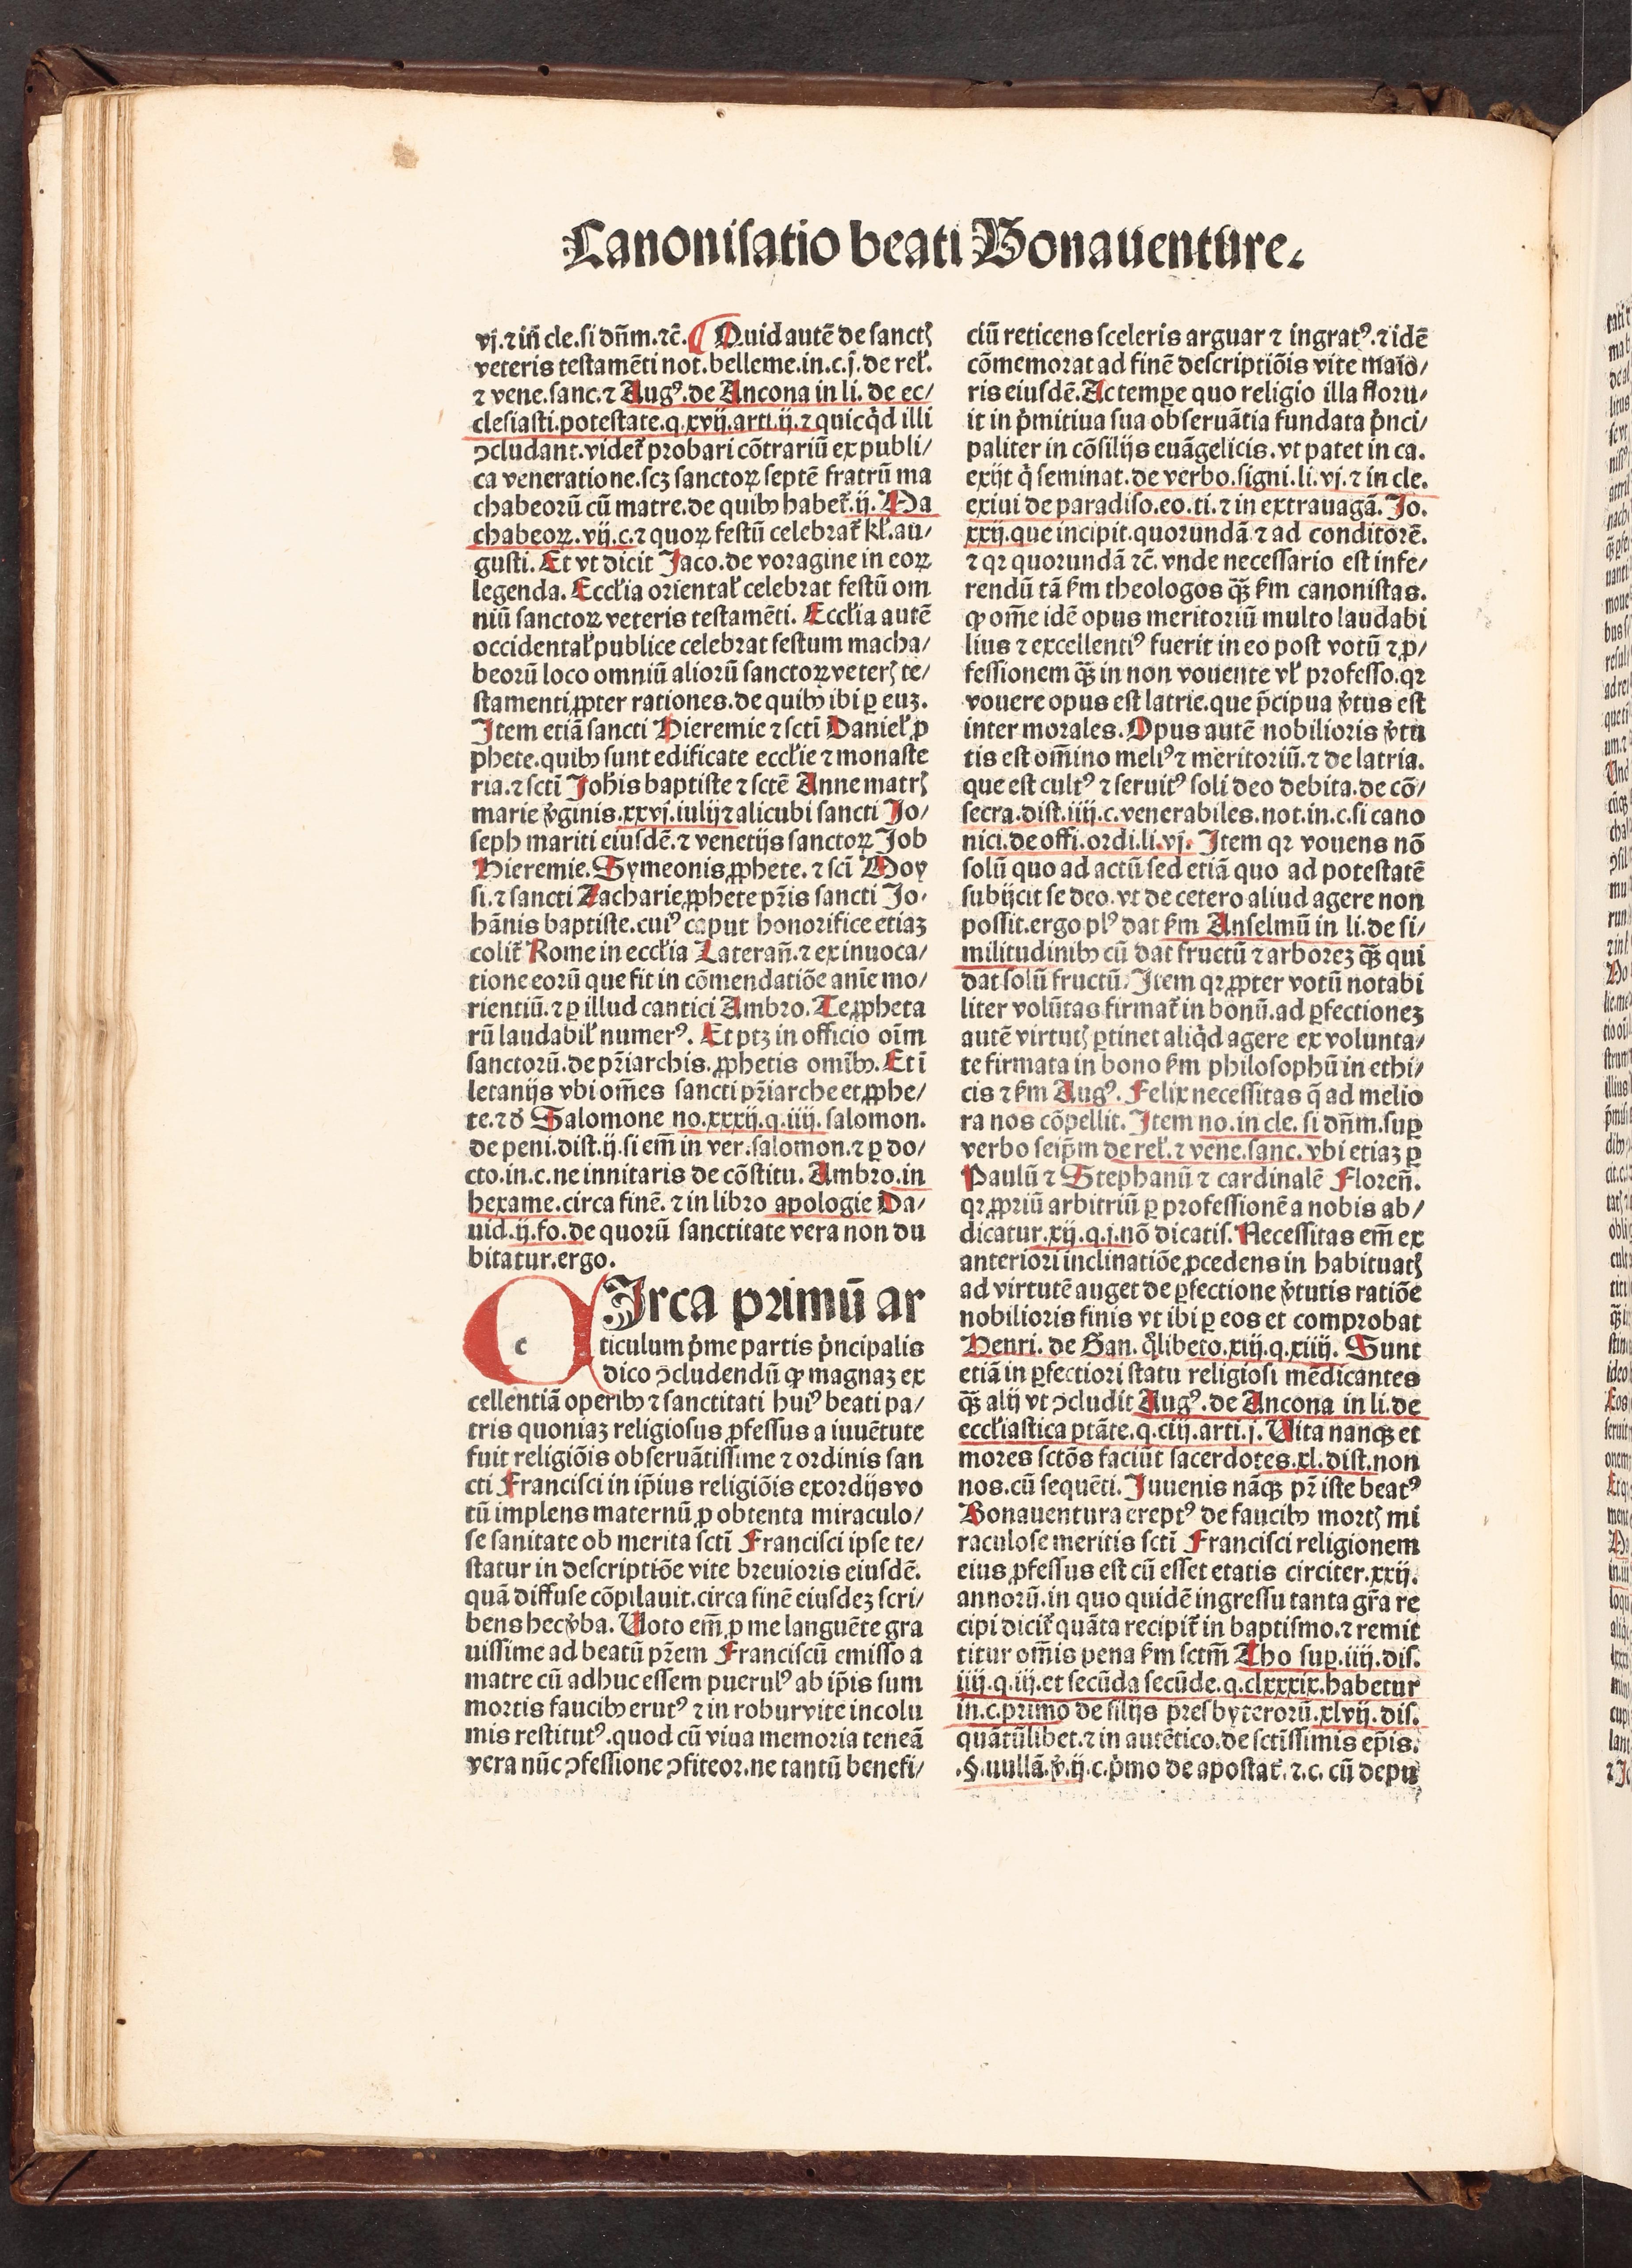 Canonisatio beati Bonauenture.
vj. ⁊ iñ cle. si dñm. ⁊c̃. ¶ Quid autẽ de sanctꝭ
veteris testamẽti not. belleme. in. c. j. de rel̃.
⁊ vene. sanc. ⁊ Augꝰ. de Ancona in li. de ec/
clesiasti. potestate. q. xvij. arti. ij. ⁊ quicq̇d illi
ꝯcludant. videt̃ probari cõtrariũ ex publi/
ca veneratione. scꝫ sanctoꝝ septẽ fratrũ ma
chabeorũ cũ matre. de quibꝰ habet̃. ij. Ma
chabeoꝝ. vij. c. ⁊ quoꝝ festũ celebrat̃ kl̃. au/
gusti. Et vt dicit Jaco. de voragine in eoꝝ
legenda. Eccl̃ia oriental̃ celebrat festũ om
niũ sanctoꝝ veteris testamẽti. Eccl̃ia autẽ
occidental̃ publice celebrat festum macha/
beorũ loco omniũ aliorũ sanctoꝝ veterꝭ te/
stamenti ꝓpter rationes. de quibꝰ ibi ꝑ euꝫ.
Item etiã sancti Hieremie ⁊ scti Daniel̃ ꝓ
phete. quibꝰ sunt edificate eccl̃ie ⁊ monaste
ria. ⁊ scti Joh̃is baptiste ⁊ sctẽ Anne matrꝭ
marie v̓ginis. xxvj. iulij ⁊ alicubi sancti Jo/
seph mariti eiusdẽ. ⁊ venetijs sanctoꝝ Job
Hieremie. Symeonis ꝓphete. ⁊ sci Moy
si. ⁊ sancti Zacharie ꝓphete pr̃is sancti Jo-
hãnis baptiste. cuiꝰ caput honorifice etiaꝫ
colit̃ Rome in eccl̃ia Laterañ. ⁊ ex inuoca/
tione eorũ que fit in cõmendatiõe anĩe mo/
rientiũ. ⁊ ꝑ illud cantici Ambro. Te ꝓpheta
rũ laudabil̃ numerꝰ. Et ptꝫ in officio oĩm
sanctorũ. de pr̃iarchis. ꝓphetis omĩbꝰ. Et ĩ
letanijs vbi om̃es sancti pr̃iarche et ꝓphe/
te. ⁊ đ Salomone no. xxxij. q. iiij. salomon.
de peni. dist. ij. si em̃ in ver. salomon. ⁊ ꝑ do/
cto. in. c. ne innitaris de cõstitu. Ambro. in
hexame. circa finẽ. ⁊ in libro apologie Da/
uid. ij. fo. de quorũ sanctitate vera non du
bitatur. ergo.
c
Irca primũ ar
ticulum p̓me partis p̓ncipalis
dico ꝯcludendũ ꝙ magnaꝫ ex
cellentiã operibꝰ ⁊ sanctitati huiꝰ beati pa/
tris quoniaꝫ religiosus ꝓfessus a iuuẽtute
fuit religiõis obseruãtissime ⁊ ordinis san
cti Francisci in ip̃ius religiõis exordijs vo
tũ implens maternũ ꝓ obtenta miraculo/
se sanitate ob merita scti Francisci ipse te/
statur in descriptiõe vite breuioris eiusdẽ.
quã diffuse cõpilauit. circa finẽ eiusdeꝫ scri/
bens hec v̓ba. Uoto em̃ ꝓ me languẽte gra
uissime ad beatũ pr̃em Franciscũ emisso a
matre cũ adhuc essem puerulꝰ ab ip̃is sum
mortis faucibꝰ erutꝰ ⁊ in robur vite incolu
mis restitutꝰ. quod cũ viua memoria teneã
vera nũc ꝯfessione ꝯfiteor. ne tantũ benefi/
ciũ reticens sceleris arguar ⁊ ingratꝰ. ⁊ idẽ
cõmemorat ad finẽ descriptiõis vite maio/
ris eiusdẽ. Ac tempe quo religio illa floru/
it in p̓mitiua sua obseruãtia fundata p̓nci/
paliter in cõsilijs euãgelicis. vt patet in ca.
exijt q̇ seminat. de verbo. signi. li. vj. ⁊ in cle.
exiui de paradiso. eo. ti. ⁊ in extrauagã. Jo.
xxij. que incipit. quorundã ⁊ ad conditorẽ.
⁊ qꝛ quorundã ⁊c̃. vnde necessario est infe/
rendũ tã ẜm theologos qꝫ̃ ẜm canonistas.
ꝙ om̃e idẽ opus meritoriũ multo laudabi
lius ⁊ excellentiꝰ fuerit in eo post votũ ⁊ ꝓ/
fessionem qꝫ̃ in non vouente vl̃ professo. qꝛ
vouere opus est latrie. que p̃cipua v̓tus est
inter morales. Opus autẽ nobilioris v̓tu
tis est om̃ino meliꝰ ⁊ meritoriũ. ⁊ de latria.
que est cultꝰ ⁊ seruitꝰ soli deo debita. de cõ/
secra. dist. iiij. c. venerabiles. not. in. c. si cano
nici. de offi. ordi. li. vj. Item qꝛ vouens nõ
solũ quo ad actũ sed etiã quo ad potestatẽ
subijcit se deo. vt de cetero aliud agere non
possit. ergo plꝰ dat ẜm Anselmũ in li. de si/
militudinibꝰ cũ dat fructũ ⁊ arboreꝫ qꝫ̃ qui
dat solũ fructũ. Item qꝛ ꝓpter votũ notabi
liter volũtas firmat̃ in bonũ. ad ꝑfectioneꝫ
autẽ virtutꝭ ꝑtinet aliq̇d agere ex volunta/
te firmata in bono ẜm philosophũ in ethi/
cis ⁊ ẜm Augꝰ. Felix necessitas q̃ ad melio
ra nos cõpellit. Item no. in cle. si dñm. suꝑ
verbo seip̃m de rel̃. ⁊ vene. sanc. vbi etiaꝫ ꝑ
Paulũ ⁊ Stephanũ ⁊ cardinalẽ Floreñ.
qꝛ ꝓpriũ arbitriũ ꝑ professionẽ a nobis ab/
dicatur. xij. q. j. nõ dicatis. Necessitas em̃ ex
anteriori inclinatiõe ꝓcedens in habituatꝭ
ad virtutẽ auget de ꝑfectione v̓tutis ratiõe
nobilioris finis vt ibi ꝑ eos et comprobat
Henri. de Gan. q̊libeto. xiij. q. xiiij. Sunt
etiã in ꝑfectiori statu religiosi mẽdicantes
qꝫ̃ alij vt ꝯcludit Augꝰ. de Ancona in li. de
eccl̃iastica ptãte. q. ciij. arti. j. Uita nanqꝫ et
mores sctõs faciũt sacerdotes. xl. dist. non
nos. cũ sequẽti. Juuenis nãqꝫ pr̃ iste beatꝰ
Bonauentura ereptꝰ de faucibꝰ mortꝭ mi
raculose meritis scti Francisci religionem
eius ꝓfessus est cũ esset etatis circiter. xxij.
annorũ. in quo quidẽ ingressu tanta gr̃a re
cipi dicit̃ quãta recipit̃ in baptismo. ⁊ remit
titur om̃is pena ẜm sctm̃ Tho suꝑ. iiij. dis.
iiij. q. iij. et secũda secũde. q. clxxxix. habetur
in. c. primo de filijs presbyterorũ. xlvij. dis.
quãtũlibet. ⁊ in autẽtico. de sctissimis ep̃is.
. §. nullã. v̓. ij. c. p̓mo de apostat̃. ⁊. c. cũ depu